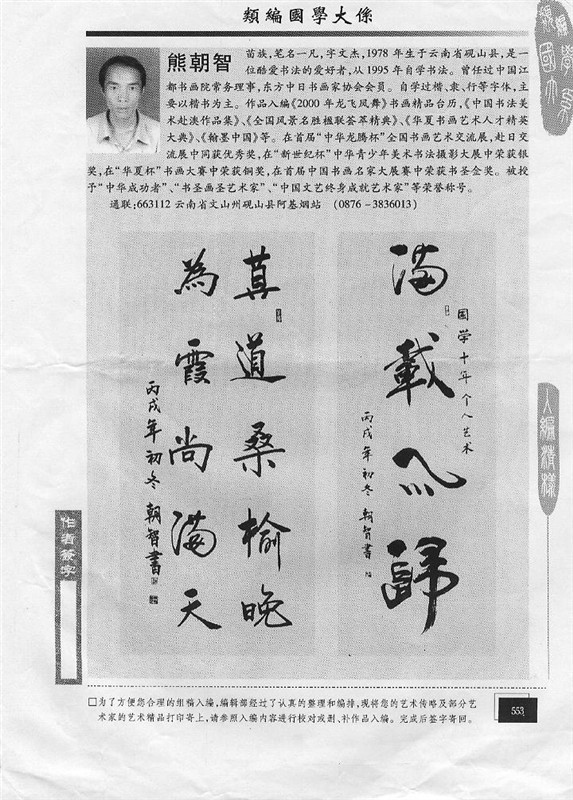 類編國學大係
熊朝智
苗族,笔名一凡,字文杰,1978 年生于云南省砚山县,是一
位酷爱书法的爱好者,从 1995 年自学书法。曾任过中国江
都书画院常务理事,东方中日书画家协会会员。自学过楷、隶、行等字体,主
要以楷书为主。作品入编《2000 年龙飞凤舞》书画精品台历,《中国书法美
术赴澳作品集》、《全国风景名胜楹联荟萃精典》、《华夏书画艺术人才精英
大典》、《翰墨中国》等。在首届“中华龙腾杯”全国书画艺术交流展,赴日交
流展中同获优秀奖,在“新世纪杯”中华青少年美术书法摄影大展中荣获银
奖,在“华夏杯”书画大赛中荣获铜奖,在首届中国书画名家大展赛中荣获书圣金奖。被授
予“中华成功者”、“书圣画圣艺术家”、“中国文艺终身成就艺术家”等荣誉称号。
通联:663112 云南省文山州砚山县阿基烟站 (0876-3836013)
滿載而歸
国学十年个人艺术
丙戌年初冬 朝智書
莫道桑榆晚
為霞尚滿天
丙戌年初冬 朝智書
入編精樣
作者簽字
□为了方便您合理的组稿入编,编辑部经过了认真的整理和编排,现将您的艺术传略及部分艺
术家的艺术精品打印寄上,请参照入编内容进行校对或删、补作品入编。完成后签字寄回。
553